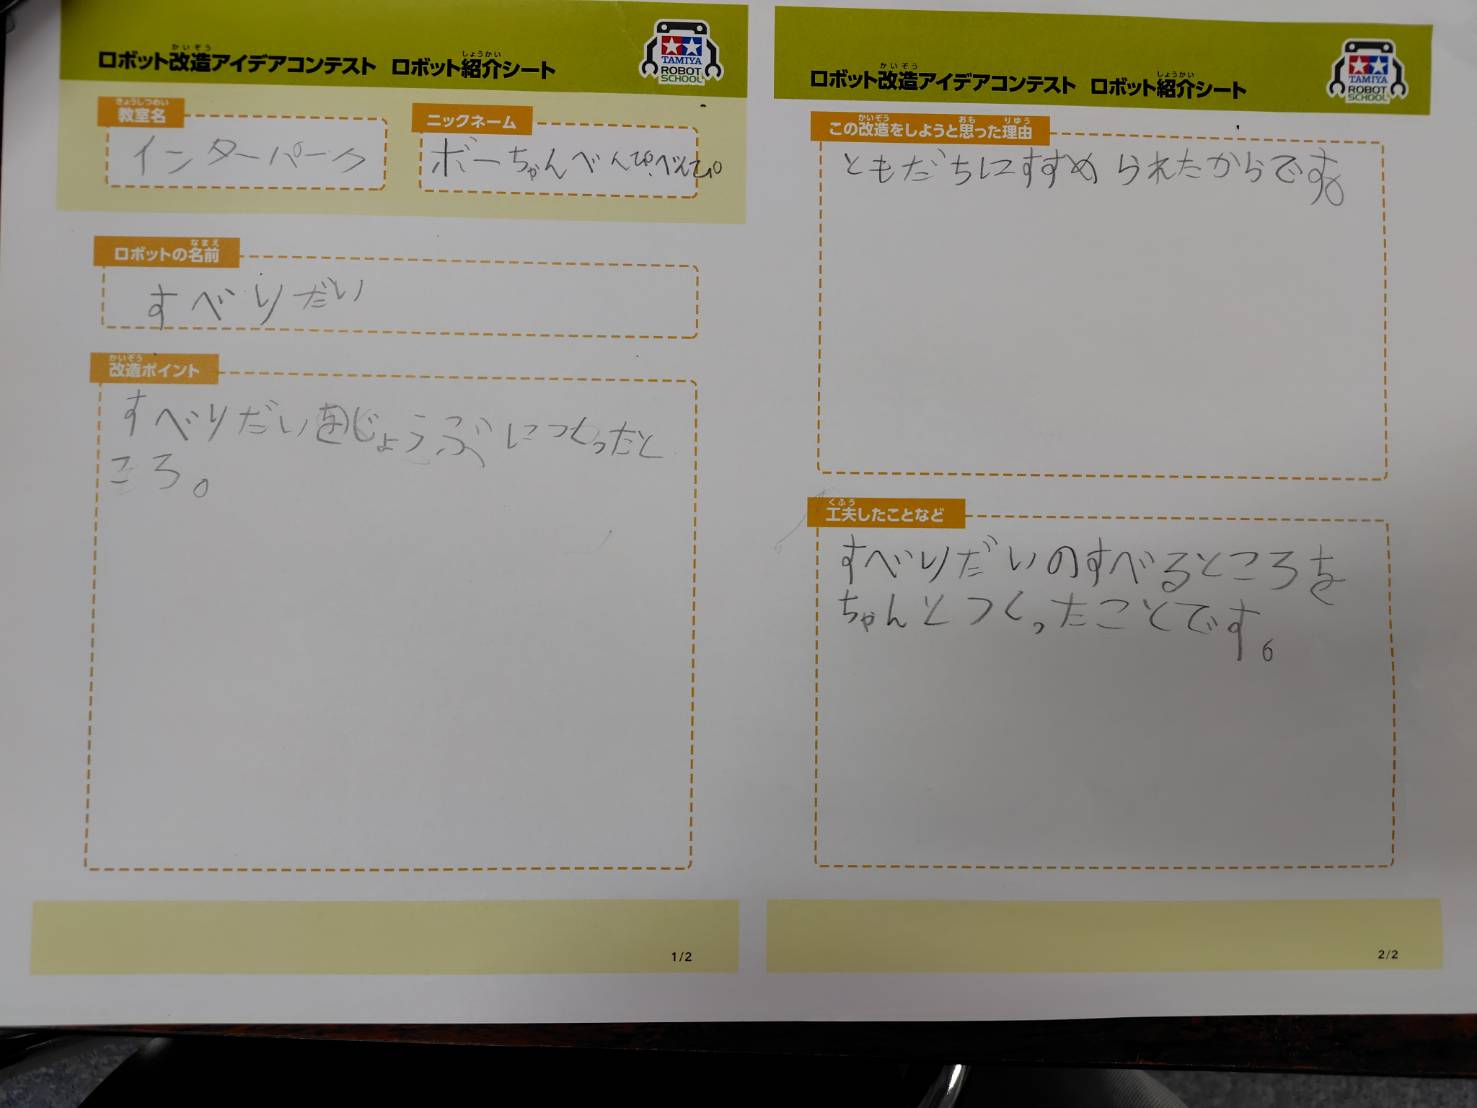 ロボット改造アイデアコンテスト ロボット紹介シート
かいぞう
しょうかい
TAMIYA
ROBOT
SCHOOL
きょうしつめい
教室名
インターパーク
ニックネーム
ボーちゃんべんぴ.べんぴ
なまえ
ロボットの名前
すべりだい
かいぞう
改造ポイント
すべりだいをじょうぶにつくったと
ころ。
1/2
ロボット改造アイデアコンテスト ロボット紹介シート
かいぞう
しょうかい
TAMIYA
ROBOT
SCHOOL
かいぞう おも りゆう
この改造をしようと思った理由
ともだちにすすめられたからです。
くふう
工夫したことなど
すべりだいのすべるところを
ちゃんとつくったことです。
2/2